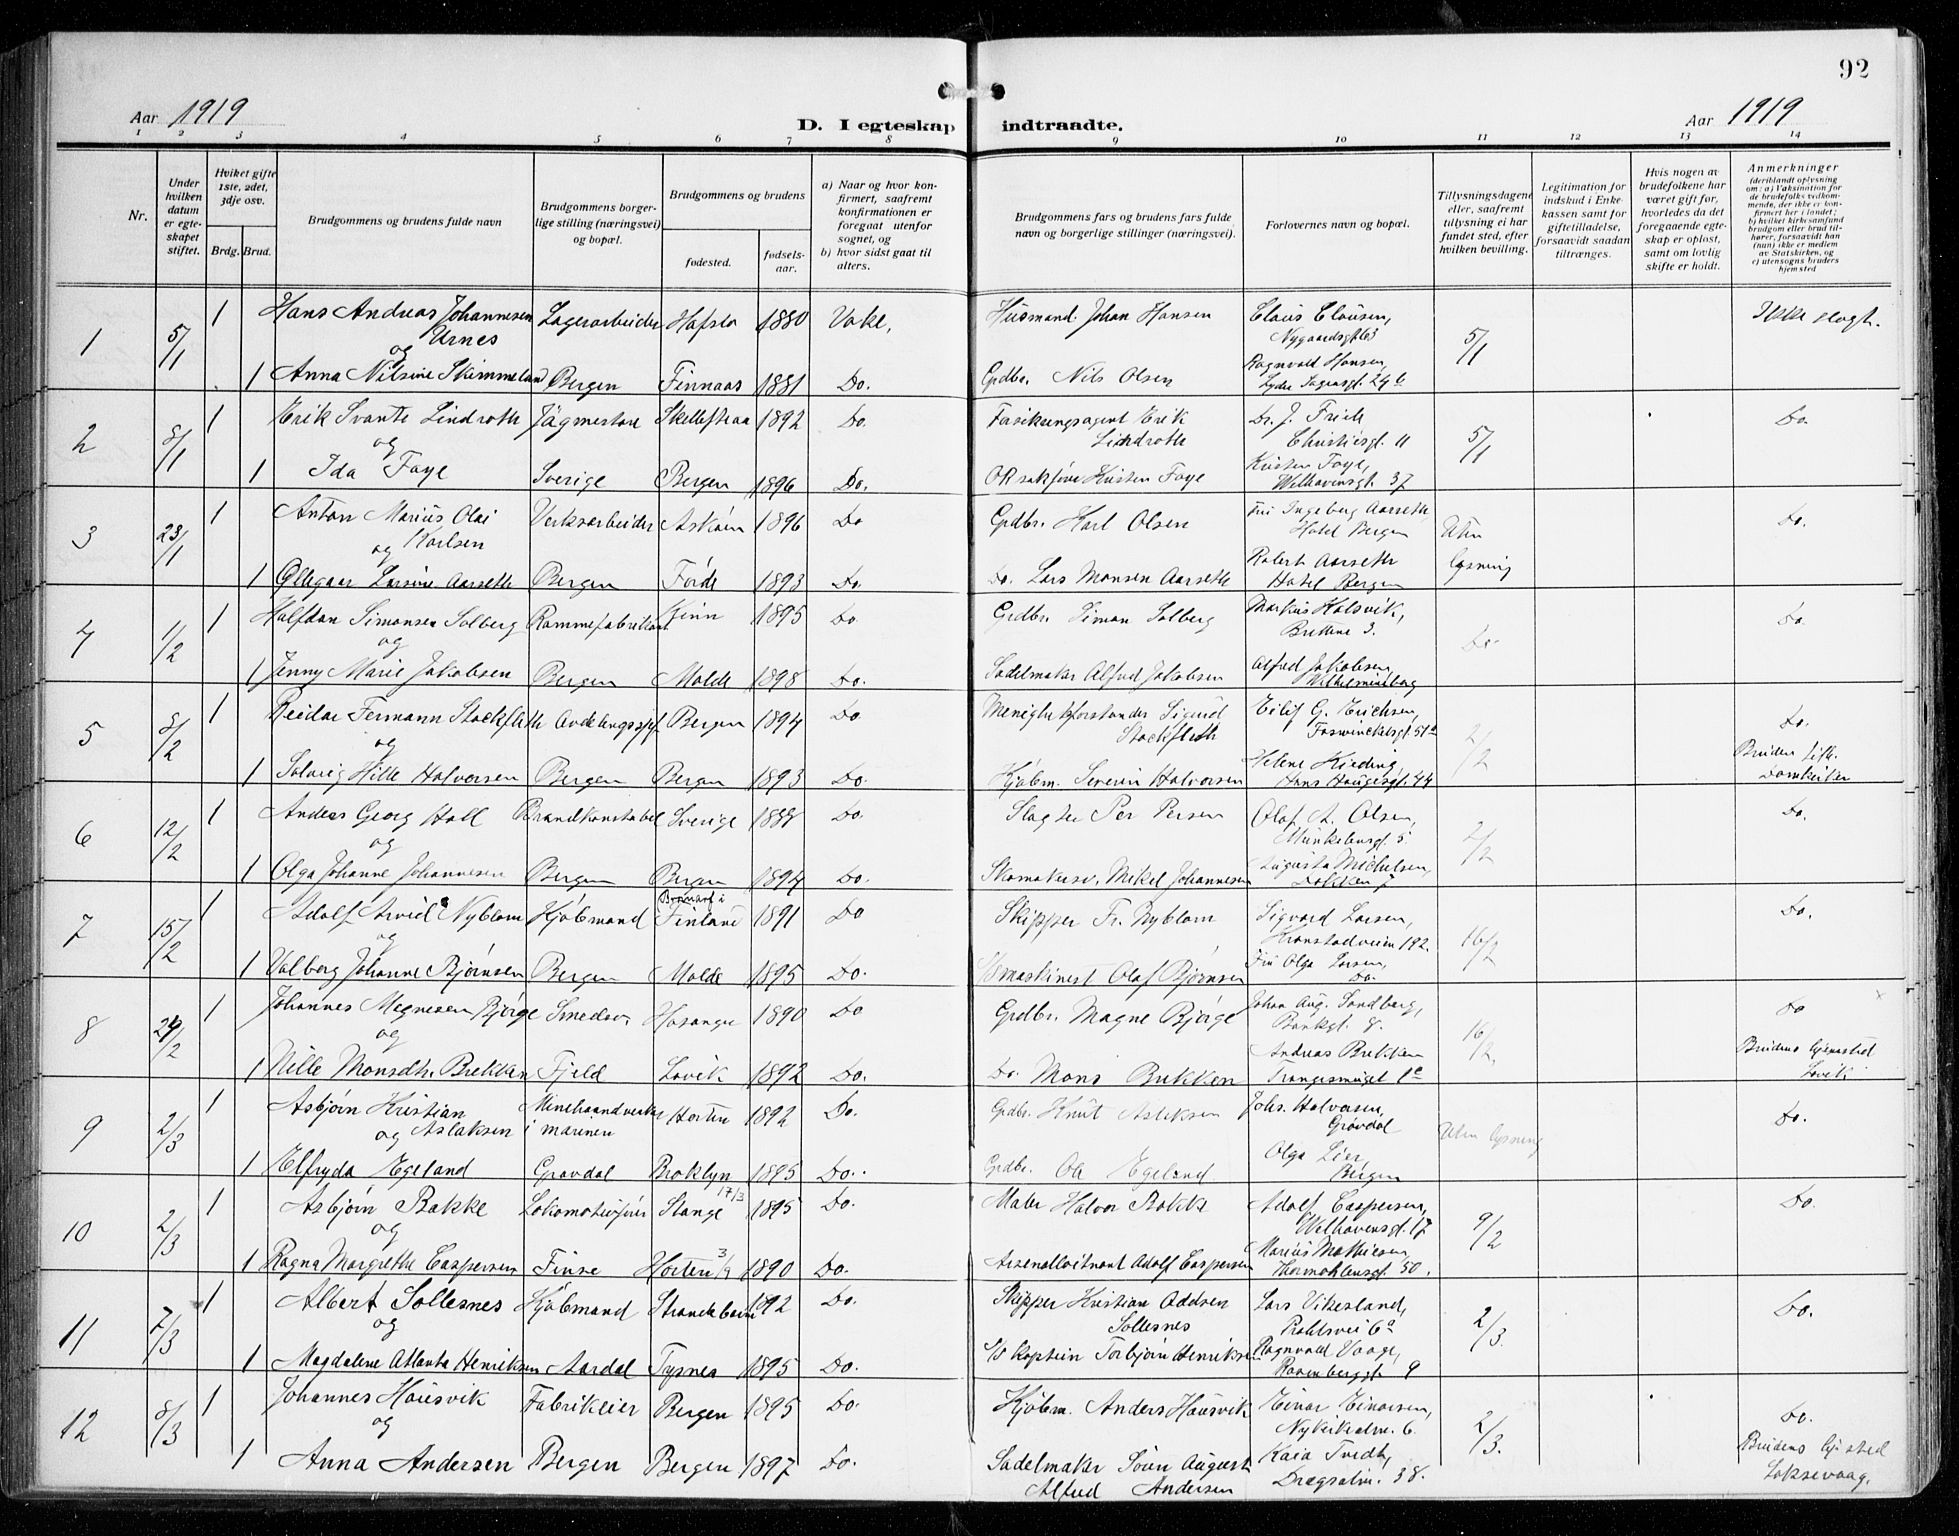 92
Aar 1919
D. I egteskap indtraadte.
Aar 1919
1 2 3 4 5 6 7 8 9 10 11 12 13 14
Nr.
Under hvilken datum er egteskapet stiftet.
Hviket gifte 1ste, 2det, 3dje osv.
Brdg. Brud.
Brudgommens og brudens fulde navn
Brudgommens borgerlige stilling (næringsvei) og bopæl.
Brudgommens og brudens
fødested.
fødselsaar.
a) Naar og hvor konfirmert, saafremt konfirmationen er foregaat utenfor sognet, og
b) hvor sidst gaat til alters.
Brudgommens fars og brudens fars fulde navn og borgerlige stillinger (næringsvei).
Forlovernes navn og bopæl.
Tillysningsdagene eller, saafremt tillysning ei har fundet sted, efter hvilken bevilling.
Legitimation for indskud i Enkekassen samt for giftetilladelse, forsaavidt saadan tiltrænges.
Hvis nogen av brudefolkene har været gift før, hvorledes da det foregaaende egteskap er opløst, samt om lovlig skifte er holdt.
Anmerkninger (deriblandt oplysning om: a) Vaksination for de brudefolks vedkommende, der ikke er konfirmert her i landet; b) hvilket kirkesamfund brudgom eller brud tilhører, forsaavidt han (hun) ikke er medlem av Statskirken, og c) utensogns bruders hjemsted
1 5/1 1 Hans Andreas Johannesen Urnes Lagerarbeider Hafslo 1880 Vake, Husmand Johan Hansen Claus Clausen, Nygaardsgt 63 5/1 Ikke slegt.
og
1 Anna Nilsine Skimmeland Bergen Finnaas 1881 Do. Grdbr. Nils Olsen Ragnvald Hansen, Lyder Sagensgt. 29 b
2 8/1 1 Erik Svante Lindroth Jägmestare Skelleftraa 1892 Do. Forsikringsagent Erik Lindroth Dr. J. Friele Christiesgt. 11 5/1 Do.
og
1 Ida Faye Sverige Bergen 1896 Do. OR sakfører Kristen Faye Kristen Faye, Welhavensgt. 37
3 23/1 1 Anton Marius Olai Karlsen Verksarbeider Askøen 1896 Do Grdbr. Karl Olsen Fru Ingeborg Aarseth, Hotel Bergen Uten lysning Do.
og
1 Ollegaar Larsine Aarseth Bergen Førde 1893 Do. Do. Lars Monsen Aarseth Robert Aarseth Hotel Bergen
4 1/2 1 Halfdan Simonsen Solberg Rammefabrikant Kinn 1895 Do Grdbr. Simon Solberg Markus Halsvik, Brattene 3. Do Do.
og
1 Jenny Marie Jakobsen Bergen Molde 1898 Do. Sadelmaker Alfred Jakobsen Alfred Jakobsen, Wilhelmineborg
5 8/2 1 Reidar Fermann Stockfleth Avdelingssjef Bergen 1894 Do Menighetsforstander Sigurd Stockfleth Eilif G. Erichsen, Fosswinckelsgt. 51a 2/2 Do.
og
1 Solveig Hille Halvorsen Bergen Bergen 1893 Do. Kjøbm. Severin Halvorsen Helene Kieding, Hans Haugesgt. 44 Bruden tilh. Domkirken
6 12/2 1 Anders Georg Holl Brandkonstabel Sverige 1889 Do Slagter Per Persen Olaf A. Olsen, Munkebøsgt 5 2/2 Do.
og
1 Olga Johanne Johannesen Bergen Bergen 1894 Do. Skomakersv. Mikel Johannesen Augusta Michelsen, Dokken 7
7 15/2 1 Adolf Arvid Nyblom Kjøbmand Finland 1891 Do Skipper Fr. Nyblom Sigvard Larsen, Kronstadveien 192. 16/2 Do.
og
1 Valborg Johanne Bjørnsen Bergen Molde 1895 Do. maskinest Olaf Bjørnsen Fru Olga Larsen, Do.
8 26/2 1 Johannes Magnesen Bjørge Smedsv. Hosanger 1890 Do Grdbr. Magne Bjørge Johan Aug. Sandberg, Bankgt. 8. 16/2 Do
og
1 Nille Monsdtr. Brekken Fjeld Lovik 1892 Do. Do. Mons Brekken Andreas Brekken Trangesmuget 1c Brudens hjemsted Lovik
9 2/3 1 Asbjørn Kristian Aslaksen Minehaandverker i marinen Horten 1892 Do. Grdbr. Knut Aslaksen Johs. Halvorsen, Gravdal Uten lysning Do.
og
1 Elfryda Egeland Gravdal Broklyn 1895 Do. Grdbr. Ole Egeland Olga Lier, Bergen
10 2/3 1 Asbjørn Bakke Lokomotivfører Stange 17/3 1895 Do. Maler Halvor Bakke Adolf Caspersen, Welhavensgt. 17 9/2 Do.
og
1 Ragna Margrethe Caspersen Finse Horten 3/9 1890 Do. Arsenalløitnant Adolf Caspersen Marius Mathiesen, Thormøhlensgt. 50.
11 7/3 1 Albert Sollesnes Kjøbmand Strandebarm 1892 Do. Skipper Kristian Oddsen Sollesnes Lars Vikesland, Prahlsvei 6a 2/3. Do.
og
1 Magdalene Atlanta Henriksen Aardal Tysnes 1895 Do. S/S kaptein Torbjørn Henriksen Ragnvald Vaage, Rosenbergsgt. 9
12 8/3 1 Johannes Hausvik Fabrikeier Bergen 1895 Do. Kjøbm. Anders Hausvik Einar Einarsen, Nykirkealm. 6. 2/3. Do.
og
1 Anna Andersen Bergen Bergen 1897 Do. Sadelmaker Søren August Alfred Andersen Kaia Tvedt, Dræggsalm. 38. Brudens hjemsted Laksevaag.